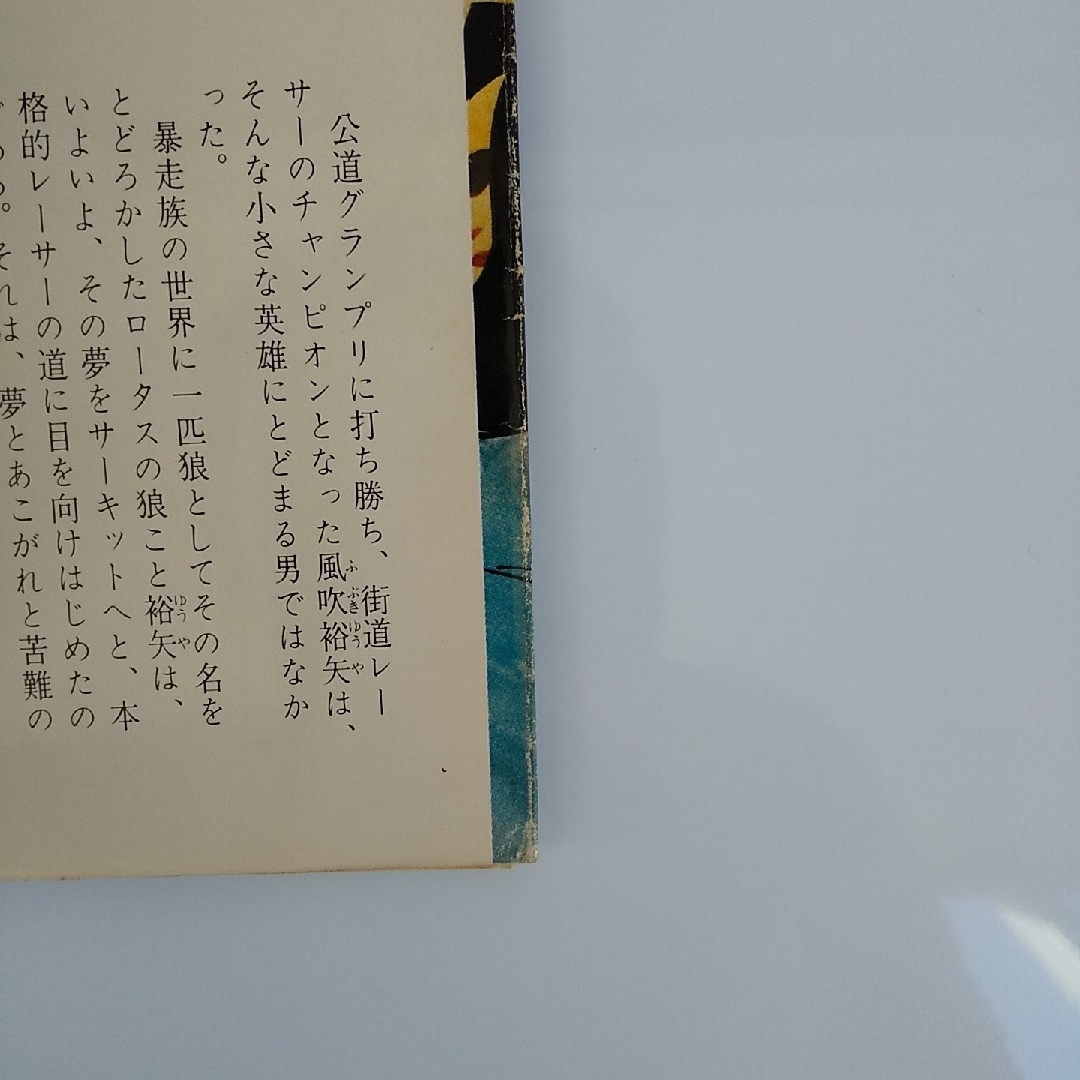 公道グランプリに打ち勝ち、街道レー
サーのチャンピオンとなった風吹裕矢は、
そんな小さな英雄にとどまる男ではなか
った。
暴走族の世界に一匹狼としてその名を
とどろかしたロータスの狼こと裕矢は、
いよいよ、その夢をサーキットへと、本
格的レーサーの道に目を向けはじめたの
それは、夢とあこがれと苦難の